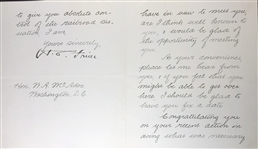 to give you absolute con-
trol of the railroad sit-
uation, I am
Yours sincerely,
Hon. W. G. McAdoo
Washington D.C.
have in view to meet you,
as I think well known to
you, & would be glad of
the opportunity of meeting
you.
At your convenience,
please let me hear from
you, & if you feel that you
might be able to get over
here, I should be glad to
have you for a date
Congratulating you
on your recent action in
doing what was necessary